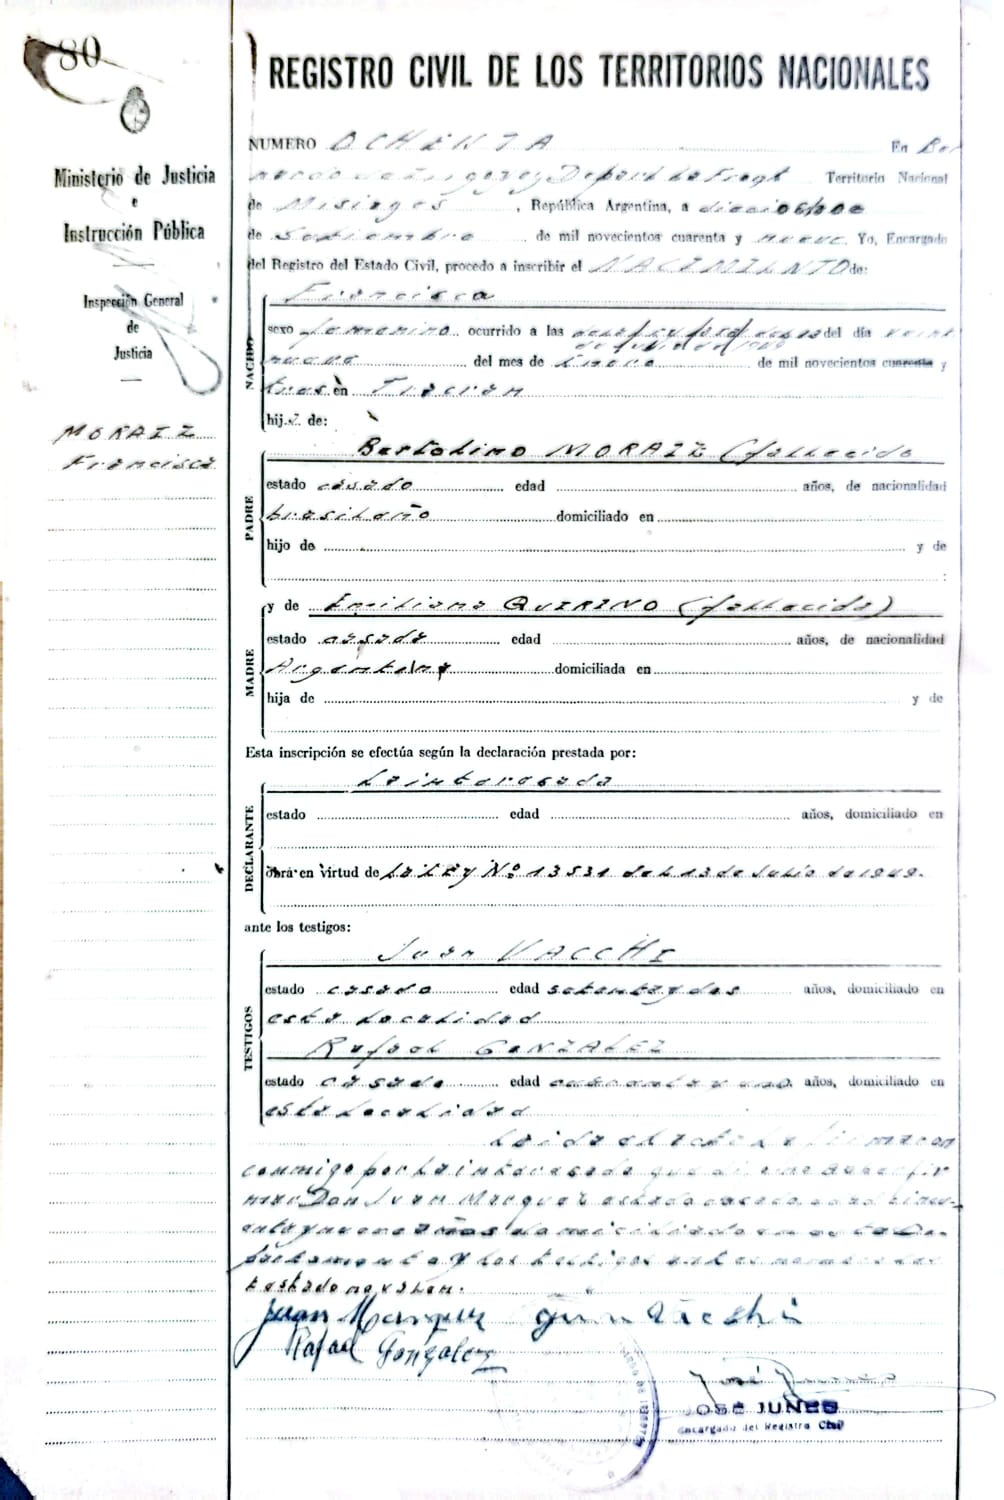 80
REGISTRO CIVIL DE LOS TERRITORIOS NACIONALES
Ministerio de Justicia
e
Instrucción Pública
Inspección General
de
Justicia
MORAIZ
Francisca
NUMERO OCHENTA En Ber
nardo de Irigoyen Depart de Frogt Territorio Nacional
de Misiones, República Argentina, a dieciocho de
de Septiembre de mil novecientos cuarenta y nueve. Yo, Encargado
del Registro del Estado Civil, procedo a inscribir el NACIMIENTO de:
NACIDO
Francisca
sexo femenino ocurrido a las del día veinti
nueve del mes de Enero de mil novecientos cuarenta y
tres en Tracran
hija de:
PADRE
Bertolino MORAIZ (fallecido
estado casado edad años, de nacionalidad
brasileño domiciliado en
hijo de y de
:
MADRE
y de Emiliana QUIRINO (fallecida)
estado casada edad años, de nacionalidad
Argentina domiciliada en
hija de y de
Esta inscripción se efectúa según la declaración prestada por:
DECLARANTE
La interesada
estado edad años, domiciliado en
obra en virtud de La Ley Nº 13531 del 13 de Julio de 1949.
ante los testigos:
TESTIGOS
Juan VACCHI
estado casado edad setenta y dos años, domiciliado en
esta localidad
Rafael GONZALEZ
estado casado edad cuarenta y uno años, domiciliado en
esta localidad
Leida el acta La firmaron
conmigo por La interesada que dice no saber fir
mar Don Juan Marquez estado casado edad cincu-
enta y nueve años domiciliado en este De-
partamento y los testigos antes nombrados
testado no valen.
Juan Marquez Juan Vacchi
Rafael Gonzalez
JOSE JUNES
Encargado del Registro Civil